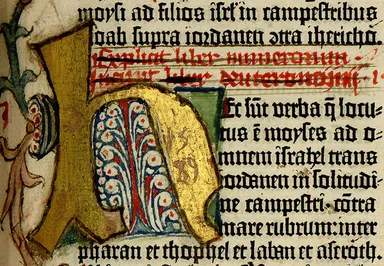 moysi ad filios isrł in campestribus
moab supra iordanen ɔtra iherichō.
Explicit liber numerorum
Incipit liber deuteronomii.
Et sūt verba q̄ locu-
tus ē moyses ad o-
mnem israhel trans
iordanen in solitudi-
ne campestri· cōtra
mare rubrum: inter
pharan et thophel et laban et aseroth.